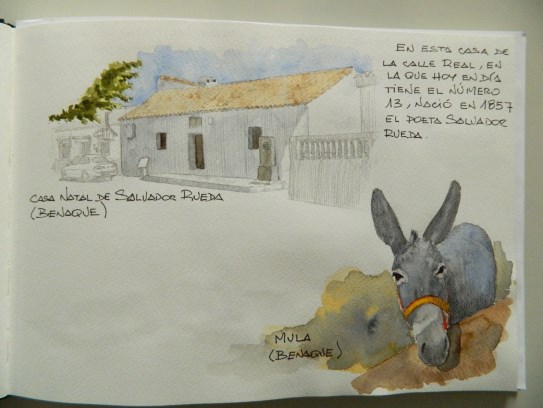 EN ESTA CASA DE
LA CALLE REAL, EN
LA QUE HOY EN DÍA
TIENE EL NÚMERO
13, NACIÓ EN 1857
EL POETA SALVADOR
RUEDA.
CASA NATAL DE SALVADOR RUEDA
(BENAQUE)
MULA
(BENAQUE)